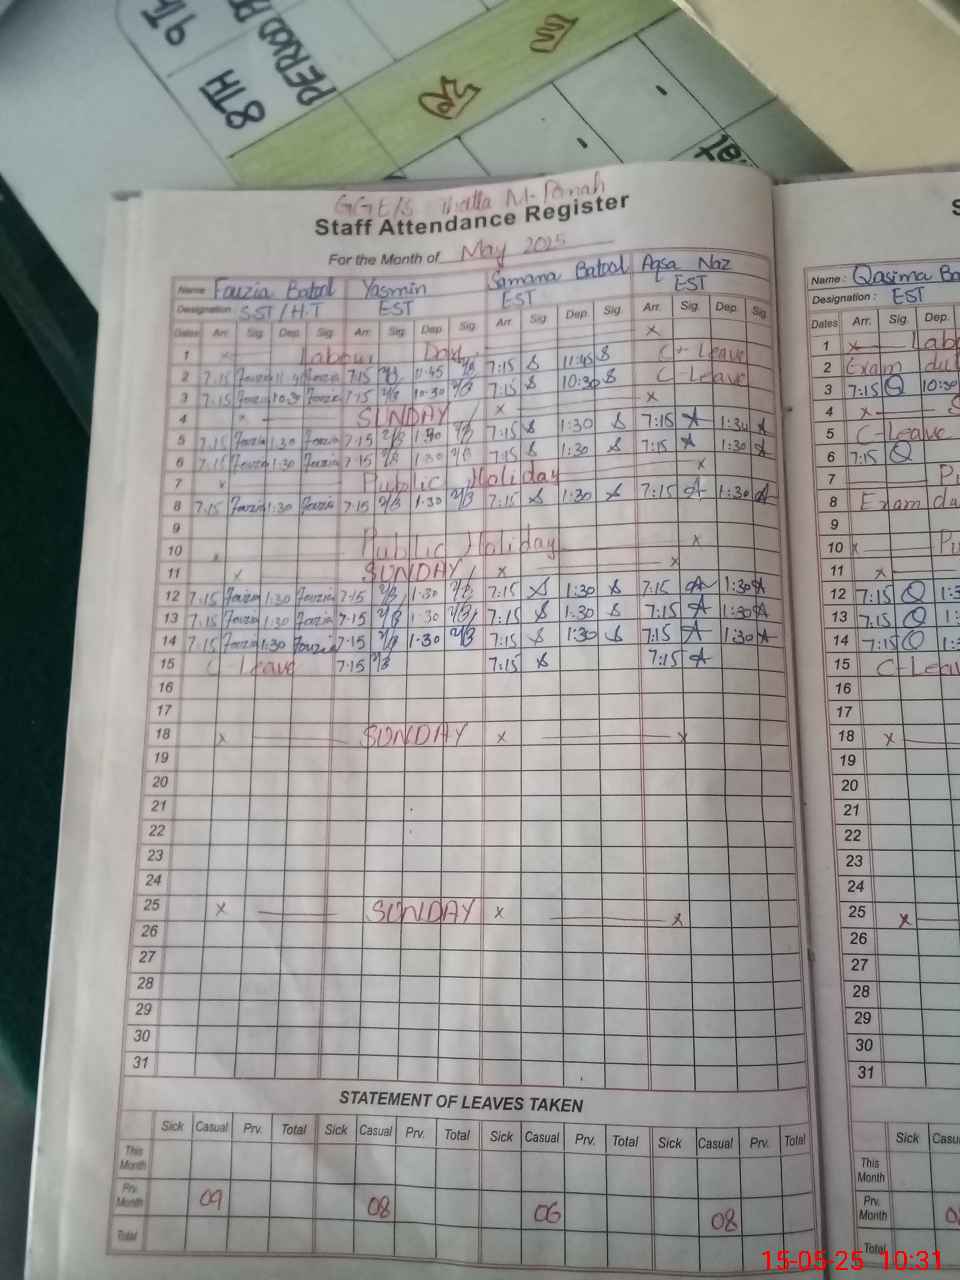 8TH
PERIOD
GGE/S
Staff Attendance Register
For the Month of May 2025
Name Fouzia Batool Yasmin Samana Batool Aqsa Naz
Designation SST/H.T EST EST EST
Dates Arr. Sig. Dep. Sig. Arr. Sig. Dep. Sig. Arr. Sig. Dep. Sig. Arr. Sig. Dep. Sig.
1 x Labour Day x
2 7:15 Fouzia 11:45 Fouzia 7:15 11:45 7:15 S 11:45 S C-Leave
3 7:15 Fouzia 10:30 Fouzia 7:15 10:30 7:15 S 10:30 S C-Leave
4 x SUNDAY x x
5 7:15 Fouzia 1:30 Fouzia 7:15 1:30 7:15 S 1:30 S 7:15 A 1:30 A
6 7:15 Fouzia 1:30 Fouzia 7:15 1:30 7:15 S 1:30 S 7:15 A 1:30 A
7 x Public Holiday x
8 7:15 Fouzia 1:30 Fouzia 7:15 1:30 7:15 S 1:30 S 7:15 A 1:30 A
9
10 x Public Holiday x
11 x SUNDAY x x
12 7:15 Fouzia 1:30 Fouzia 7:15 1:30 7:15 S 1:30 S 7:15 A 1:30 A
13 7:15 Fouzia 1:30 Fouzia 7:15 1:30 7:15 S 1:30 S 7:15 A 1:30 A
14 7:15 Fouzia 1:30 Fouzia 7:15 1:30 7:15 S 1:30 S 7:15 A 1:30 A
15 C-Leave 7:15 7:15 S 7:15 A
16
17
18 x SUNDAY x x
19
20
21
22
23
24
25 x SUNDAY x x
26
27
28
29
30
31
STATEMENT OF LEAVES TAKEN
Sick Casual Prv. Total Sick Casual Prv. Total Sick Casual Prv. Total Sick Casual Prv. Total
This Month
Prv. Month 09 08 06 08
Total
Name: Qasima
Designation: EST
Dates Arr. Sig. Dep.
1 x
2 Exam
3 7:15 Q 10:30
4 x
5 C-Leave
6 7:15 Q
7
8 Exam
9
10 x
11 x
12 7:15 Q
13 7:15 Q
14 7:15 Q
15
16
17
18 x
19
20
21
22
23
24
25 x
26
27
28
29
30
31
Sick
This Month
Prv. Month
Total
15-05-25 10:31